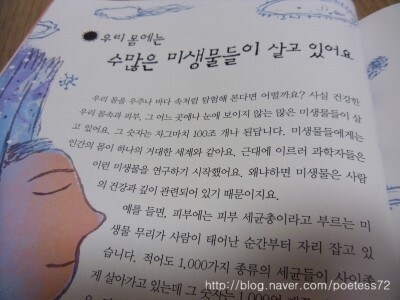 우리 몸에는
수많은 미생물들이 살고 있어요
우리 몸을 우주나 바다 속처럼 탐험해 본다면 어떨까요? 사실 건강한
우리 몸속과 피부, 그 어느 곳에나 눈에 보이지 않는 많은 미생물들이 살
고 있어요. 그 숫자는 자그마치 100조 개나 된답니다. 미생물들에게는
인간의 몸이 하나의 거대한 세계와 같아요. 근대에 이르러 과학자들은
이런 미생물을 연구하기 시작했어요. 왜냐하면 미생물은 사람
의 건강과 깊이 관련되어 있기 때문이지요.
예를 들면, 피부에는 피부 세균총이라고 부르는 미
생물 무리가 사람이 태어난 순간부터 자리 잡고 있
습니다. 적어도 1,000가지 종류의 세균들이 사이좋
게 살아가고 있는데 그 숫자는
http://blog.naver.com/poetess72